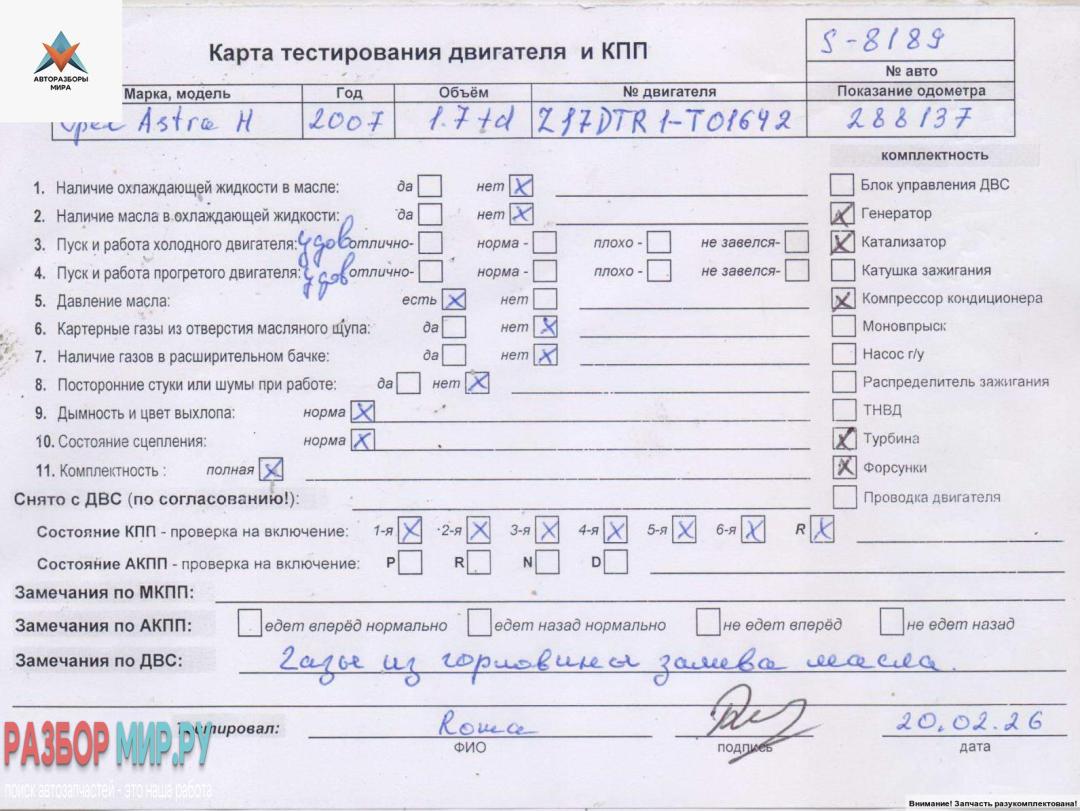 АВТОРАЗБОРЫ
МИРА
Карта тестирования двигателя и КПП
S-8189
№ авто
Марка, модель Год Объём № двигателя Показание одометра
Opel Astra H 2007 1.7 td Z17DTR 1-T01642 288137
комплектность
1. Наличие охлаждающей жидкости в масле: да нет X
Блок управления ДВС
2. Наличие масла в охлаждающей жидкости: да нет X
X Генератор
3. Пуск и работа холодного двигателя: удов отлично- норма - плохо- не завелся-
X Катализатор
4. Пуск и работа прогретого двигателя: удов отлично- норма - плохо- не завелся-
Катушка зажигания
5. Давление масла: есть X нет
X Компрессор кондиционера
6. Картерные газы из отверстия масляного щупа: да нет X
Моновпрыск
7. Наличие газов в расширительном бачке: да нет X
Насос г/у
8. Посторонние стуки или шумы при работе: да нет X
Распределитель зажигания
9. Дымность и цвет выхлопа: норма X
ТНВД
10. Состояние сцепления: норма X
X Турбина
11. Комплектность : полная X
X Форсунки
Снято с ДВС (по согласованию!):
Проводка двигателя
Состояние КПП - проверка на включение: 1-я X 2-я X 3-я X 4-я X 5-я X 6-я X R X
Состояние АКПП - проверка на включение: P R N D
Замечания по МКПП:
Замечания по АКПП: едет вперёд нормально едет назад нормально не едет вперёд не едет назад
Замечания по ДВС: Газы из горловины залива масла.
Тестировал: Рома 20.02.26
ФИО подпись дата
РАЗБОР МИР.РУ
поиск автозапчастей - это наша работа
Внимание! Запчасть разукомплектована!